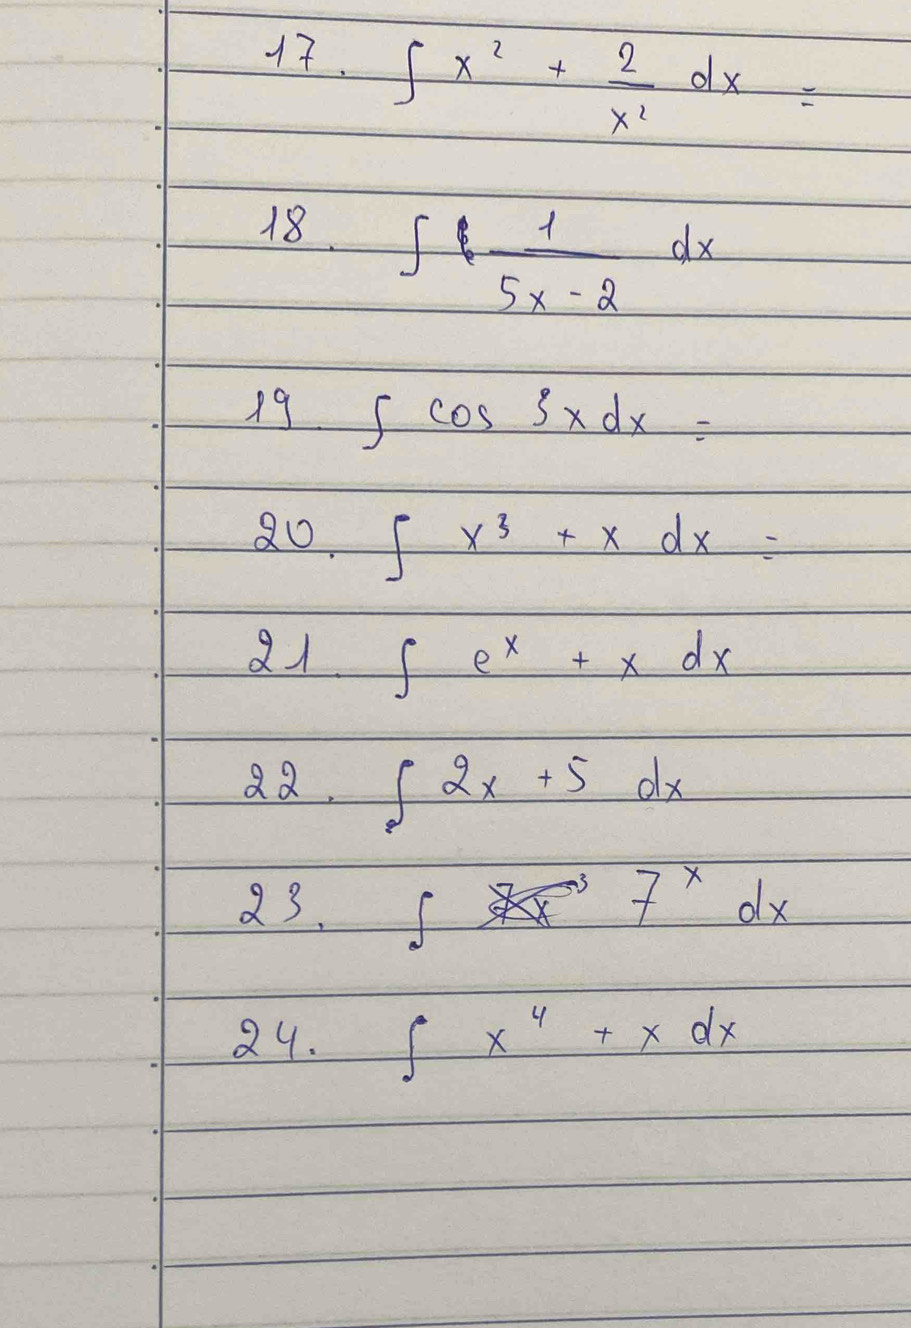 17. ∫ x² + 2/x² dx =
18. ∫ 1/(5x - 2) dx
19. ∫ cos 3x dx =
20. ∫ x³ + x dx =
21. ∫ eˣ + x dx
22. ∫ 2x + 5 dx
23. ∫ 7ˣ dx
24. ∫ x⁴ + x dx